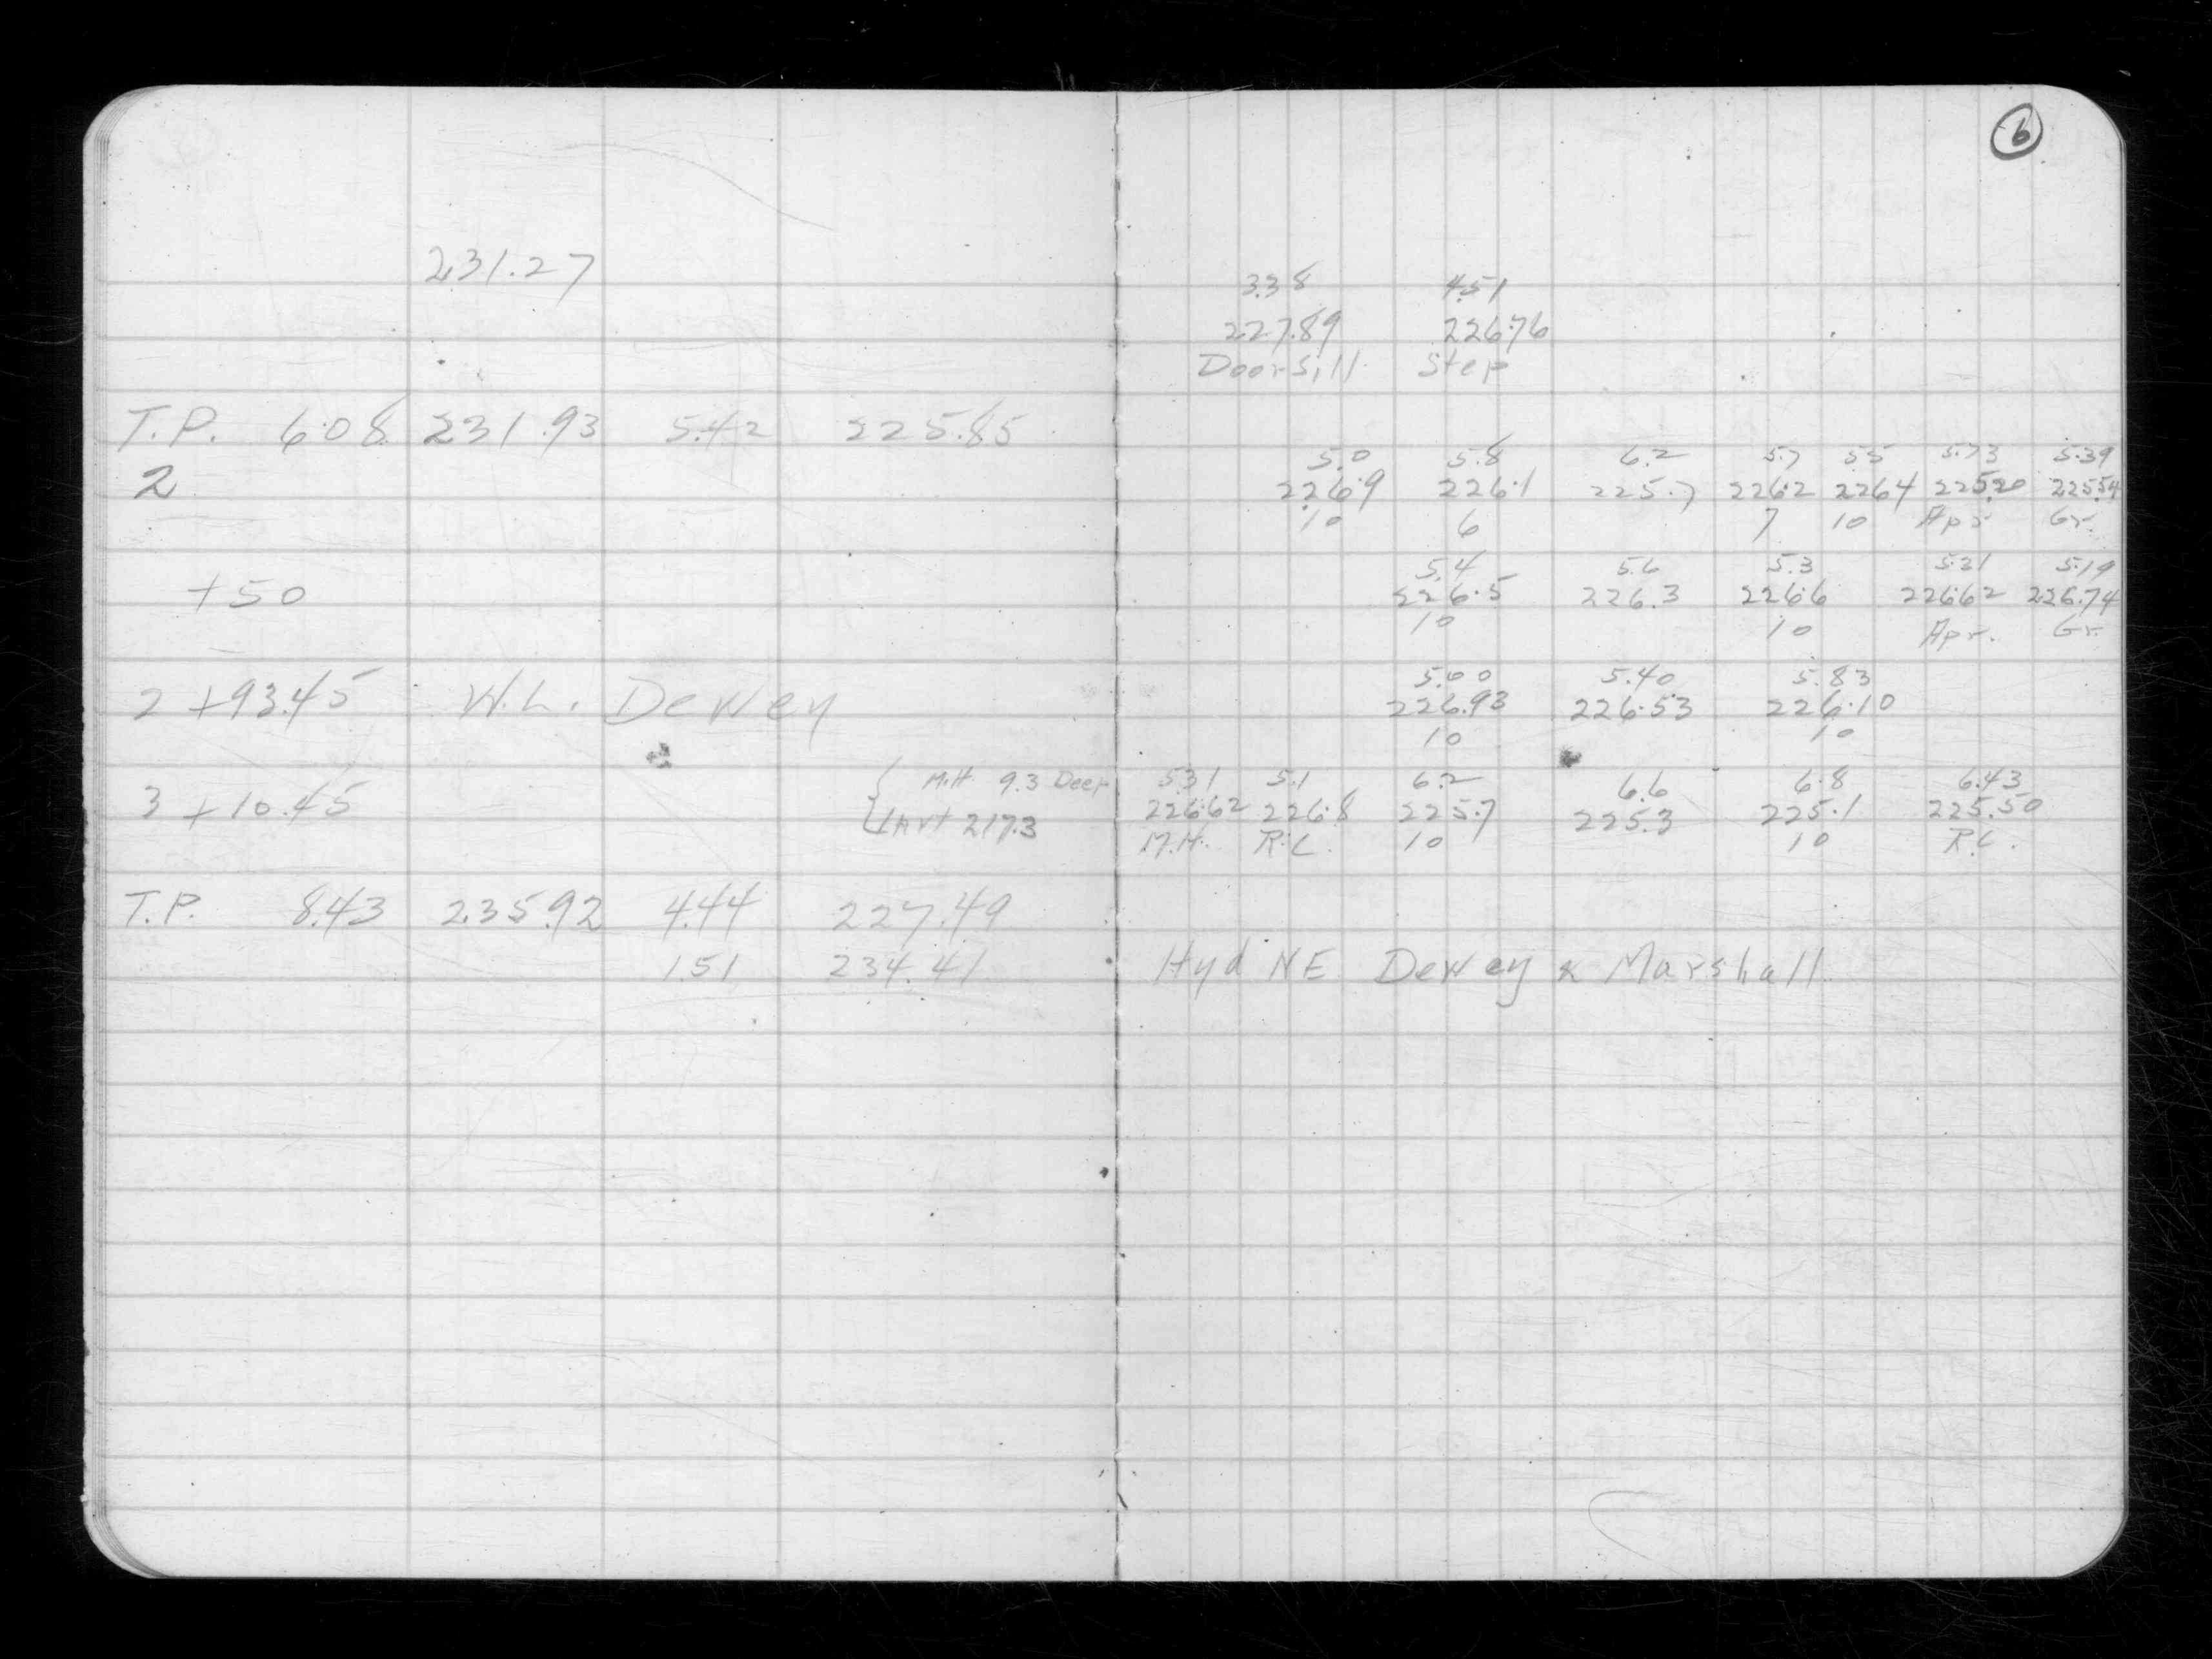 6
231.27
3.38 4.51
227.89 226.76
Doorsill Step
T.P. 6.08 231.93 5.42 225.85
5.0 5.8 6.2 5.7 5.5 5.73 5.39
2 226.9 226.1 225.7 226.2 226.4 225.20 225.54
10 6 7 10 Apr Gr.
5.4 5.6 5.3 5.31 5.19
+50 226.5 226.3 226.6 226.62 226.74
10 10 Apr. Gr.
5.00 5.40 5.83
2 +93.45 W.L. Dewey 226.93 226.53 226.10
10 10
M.H. 9.3 Deep 5.31 5.1 6.2 6.6 6.8 6.43
3 +10.45 Invt 217.3 226.62 226.8 225.7 225.3 225.1 225.50
M.H. R.L. 10 10 R.L.
T.P. 8.43 235.92 4.44 227.49
1.51 234.41 Hyd NE Dewey & Marshall